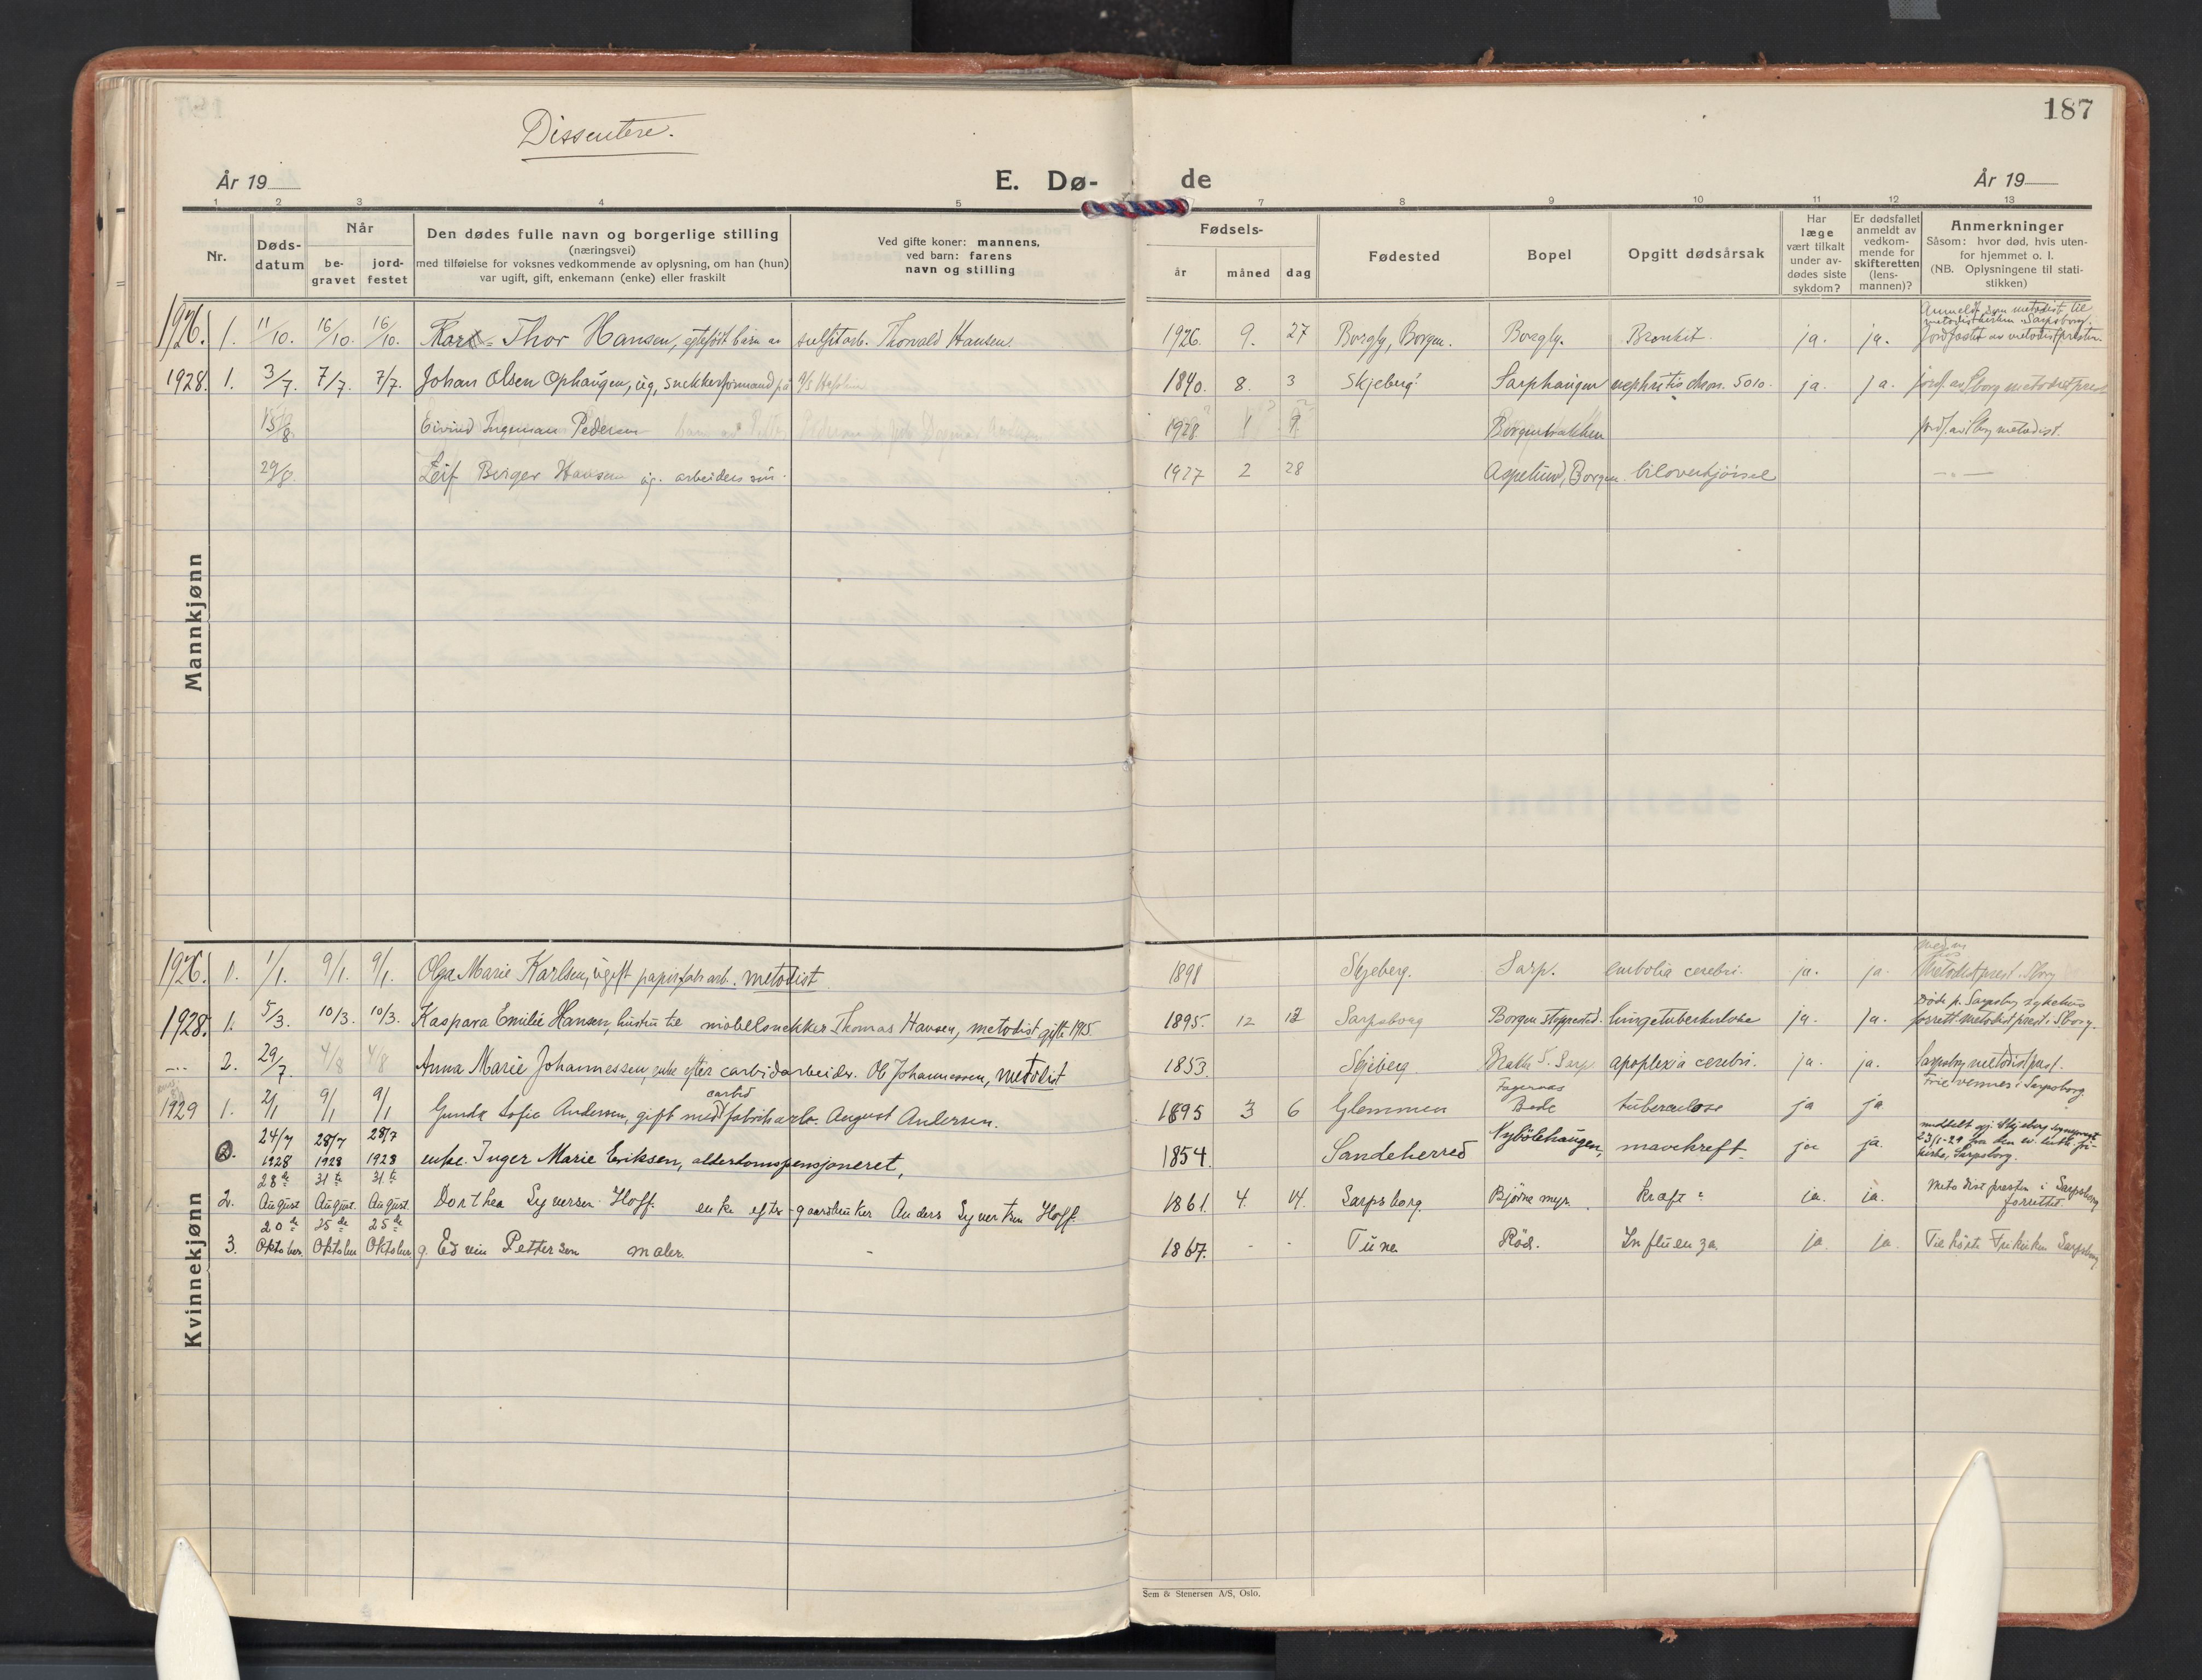 187
Dissentere.
År 19
E. Dø- de
År 19
1 2 3 4 5 7 8 9 10 11 12 13
Nr.
Døds-
datum
Når
be-
gravet
jord-
festet
Den dødes fulle navn og borgerlige stilling
(næringsvei)
med tilføielse for voksnes vedkommende av oplysning, om han (hun)
var ugift, gift, enkemann (enke) eller fraskilt
Ved gifte koner: mannens,
ved barn: farens
navn og stilling
Fødsels-
år måned dag
Fødested
Bopel
Opgitt dødsårsak
Har
læge
vært tilkalt
under av-
dødes siste
sykdom?
Er dødsfallet
anmeldt av
vedkom-
mende for
skifteretten
(lens-
mannen)?
Anmerkninger
Såsom: hvor død, hvis uten-
for hjemmet o. l.
(NB. Oplysningene til stati-
stikken)
Mannkjønn
Anmeldt som metodist til
metodistkirken Sarpsborg.
Jordfæstet av metodistpresten
1926. 1. 11/10. 16/10. 16/10. Thor Hansen, egtefødt barn av sulfitarb. Thorvald Hansen. 1926. 9. 27 Borgly, Borgen. Borgly. Bronkit. ja. ja.
1928. 1. 3/7. 7/7. 7/7. Johan Olsen Ophaugen, ug, snekkerformand på A/S Hafslun 1840. 8. 3 Skjeberg. Sarphaugen nephritis chron. 5010. ja. ja. jordf. av Sborg metodistprest
15/8. Eivind Ingeman Pedersen 1928 1 9 Borgenbakken jordf. av Sbrg metodist.
29/8. Leif Birger Hansen ug. arbeiders søn. 1927 2 28 Aspelund, Borgen. biloverkjørsel
Kvinnekjønn
1926. 1. 1/1. 9/1. 9/1. Olga Marie Karlsen, ugift papirfabr arb. metodist. 1898 Skjeberg. Sarp. embolia cerebri. ja. ja. Metodistprest. Sborg
Døde på Sarpsborg sykehus
1928. 1. 5/3. 10/3. 10/3. Kaspara Emilie Hansen, hustru til møbelsnekker Thomas Hansen, metodist gift 1915 1895. 12 12 Sarpsborg Borgen lungetuberkulose ja. ja. forrett. metodistprest. Sborg.
2. 29/7. 4/8 4/8 Anna Marie Johannessen, enke efter carbidarbeider. Ol Johannessen, metodist 1853. Skjeberg. apoplexia cerebri. ja. ja. Sarpsborg metodistprest.
carbid
Fagernæs
Frie venner i Sarpsborg.
1929 1. 2/1 9/1 9/1 Gunda Sofie Andersen, gift med fabrikarb. August Andersen. 1895 3 6 Glemmen Bede tuberculose ja ja
24/7 28/7 28/7
2. 1928 1928 1928 enke. Inger Marie Eriksen, alderdomspensjoneret, 1854. Sandeherred Nybölehaugen, mavekreft. ja ja.
meddelt gj. Skjeberg
23/1-29 fra den ev. luth. fri-
kirke, Sarpsborg.
28de 31te 31te
2. August August. August. Dorthea Syversen Hoff. enke efter gaardbruker Anders Syvertsen Hoff. 1861. 4. 14. Sarpsborg Bjørnemyr. kræft ja. ja.
Metodist presten i Sarpsborg
forrettet.
20de 25de 25de
3. Oktober. Oktober Oktober g. Edvin Pettersen maler. 1867. Tune. Röd. Influenza ja ja Tilhørte Frikirken Sarpsborg
Sem & Stenersen A/S, Oslo.